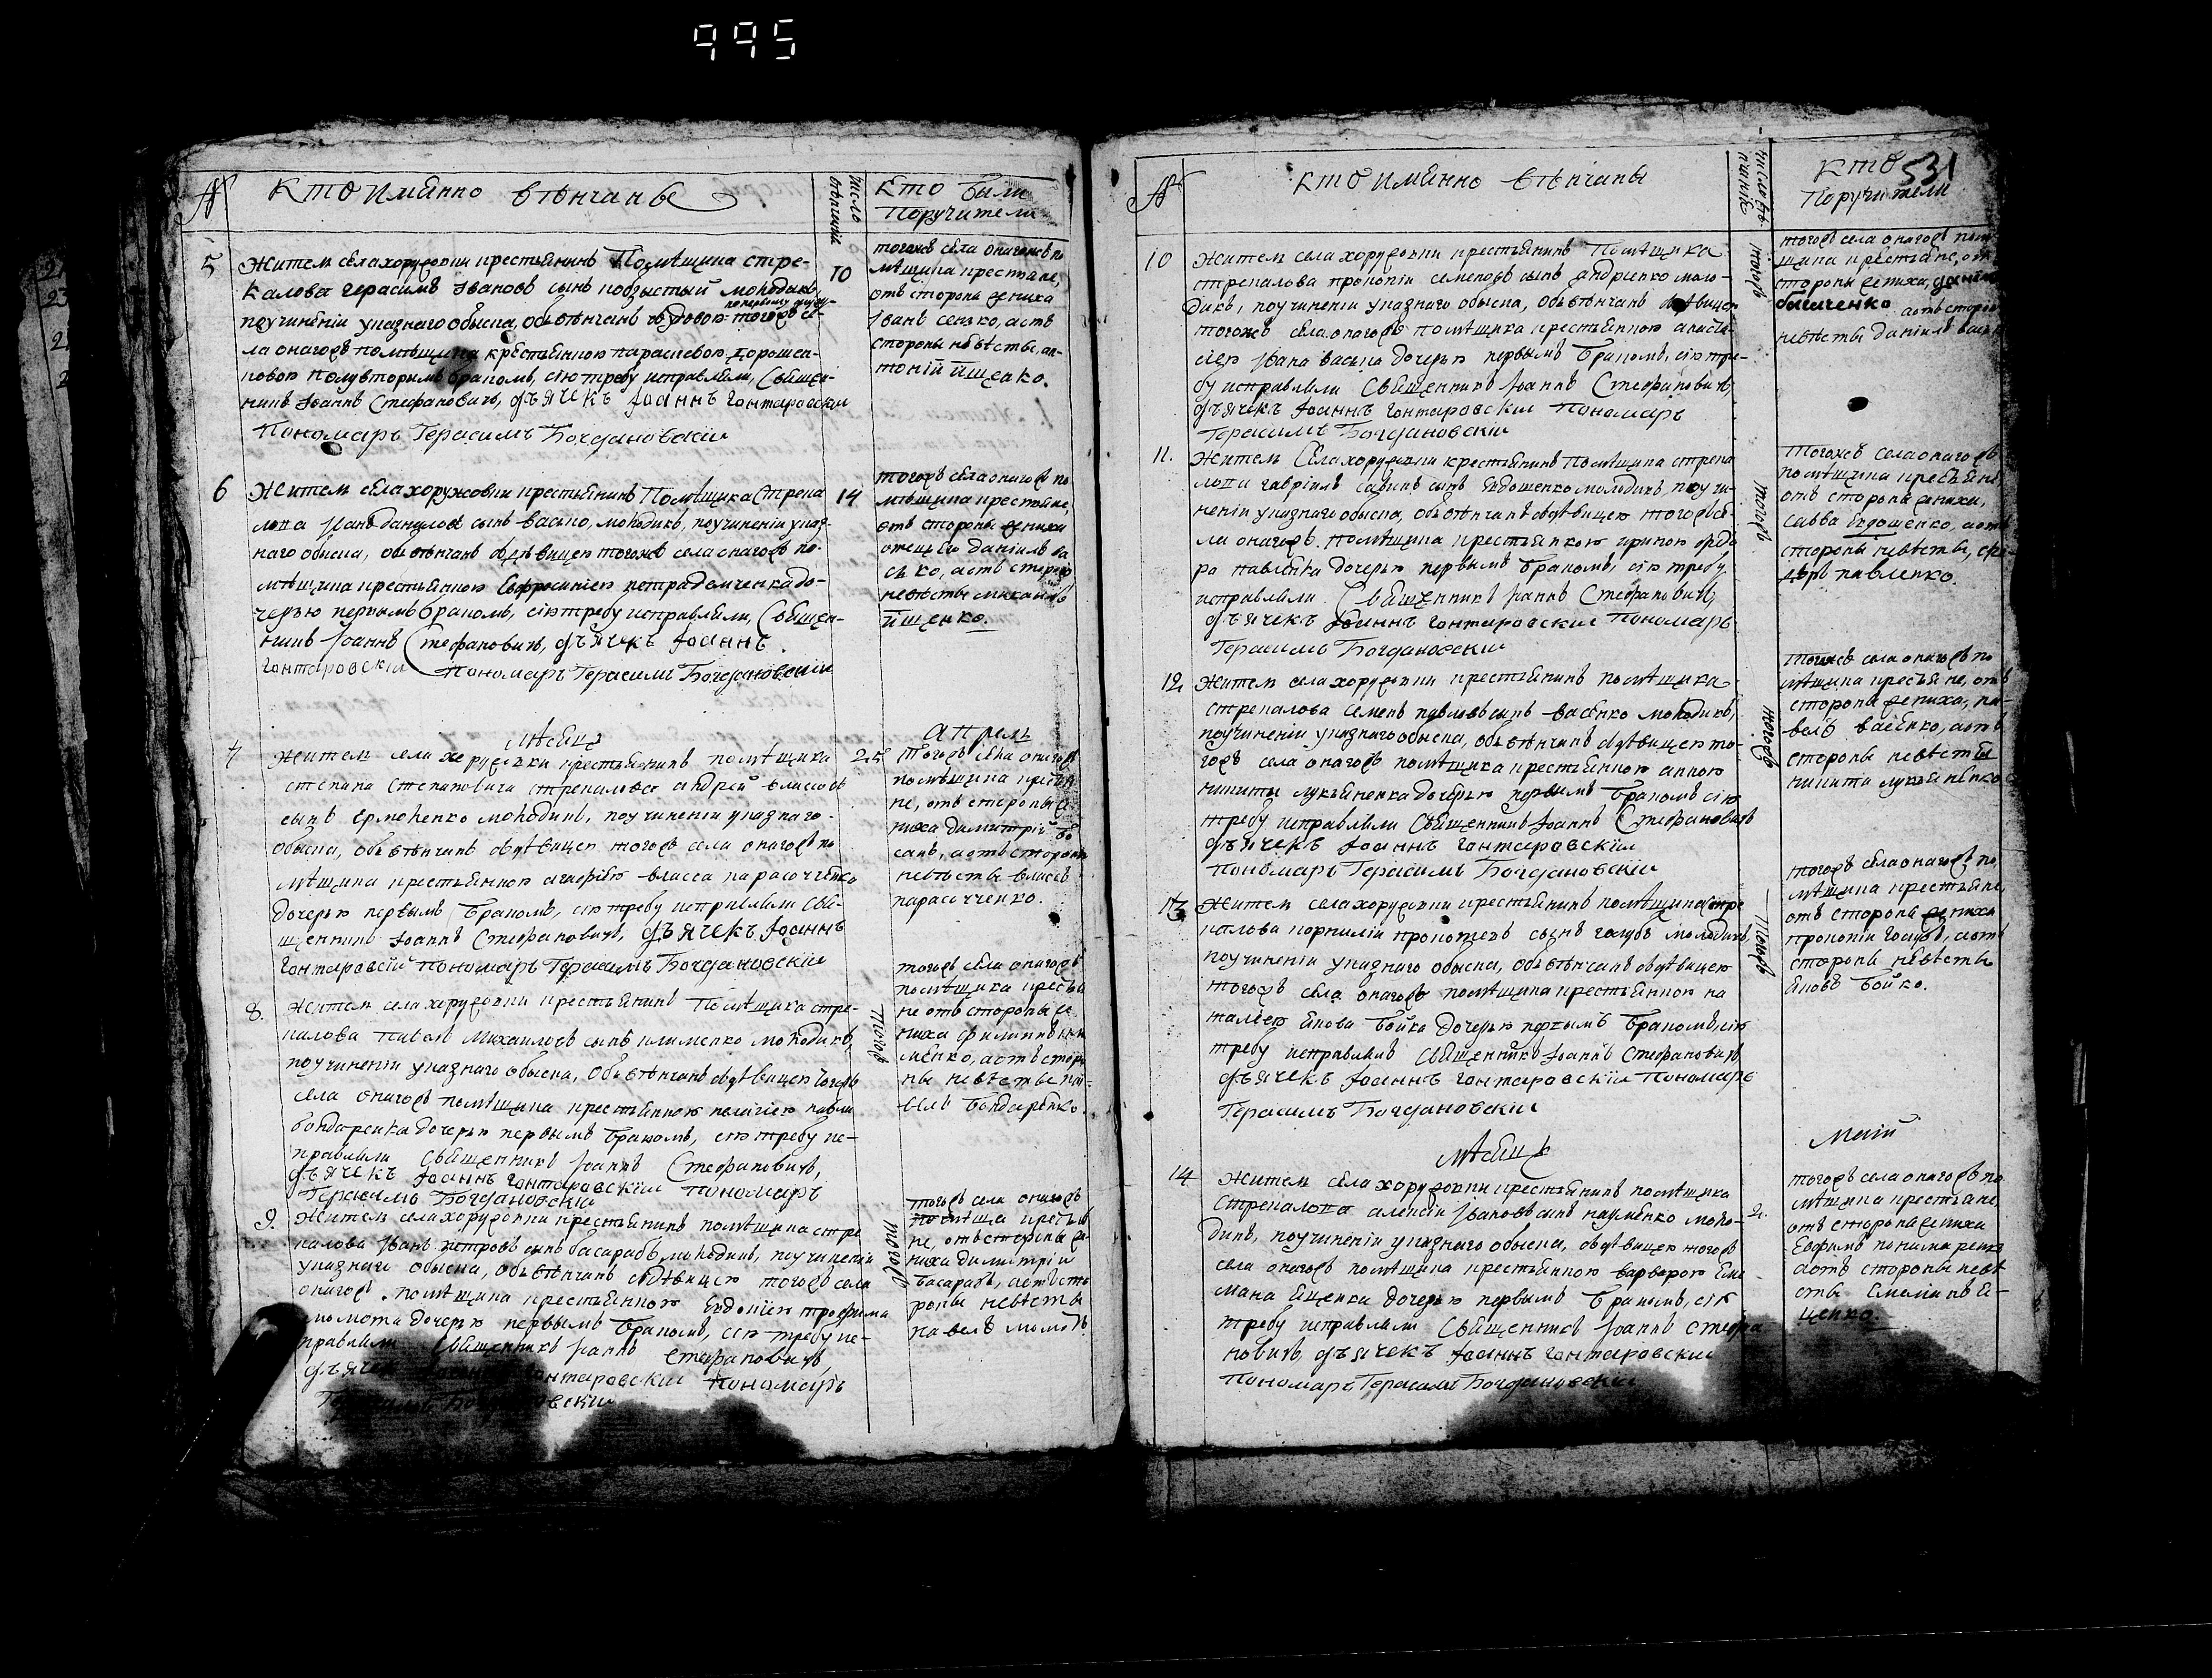 995
№
Кто имянно вѣнчаны
число вѣнчанія
Кто были
Поручители
5
Жители села хоружовки крестьянинъ Помѣщика Стре-
калова герасимъ Ивановъ сынъ молодикъ,
поучиненіи указнаго обыска, обвѣнчанъ вдовою тогожъ се-
ла онагожъ помѣщика крестьянкою параскевою
полувторимъ бракомъ, сію требу исправляли, Священ-
никъ Іоаннъ Стефановичъ, дьячекъ Іоаннъ Гонтаровскіи
Пономаръ Герасимъ Богдановскіи
10
тогожъ села онагожъ по
мѣщика крестяне,
отъ стороны жениха
Іванъ сенко, астъ
стороны невѣсты, ан-
тоній йщенко.
6
Жители села хоружовки крестьянинъ Помѣщика Стрека
лова Іванъ даниловъ сынъ васько, молодикъ, поучиненіи указ-
наго обыска, обвѣнчанъ здѣвицею тогожъ села онагожъ по-
мѣщика крестьянкою Евфросиніею петра демченка до-
черью первымъ бракомъ, сію требу исправляли, Священ-
никъ Іоаннъ Стефановичъ, дьячекъ Іоаннъ
Гонтаровскіи Пономаръ Герасимъ Богдановскіи
14
тогожъ села онагожъ по
мѣщика крестяне,
отъ стороны жениха
отецъ его даніилъ ва
сько, астъ сторо
невѣсты михаилъ
йщенко.
мѣсяцъ
априль
7
Жители села хоружовки крестьянинъ помѣщика
степана Степановича стрекалова андрей власовъ
сынъ Ермоленко молодикъ, поучиненіи указнаго
обыска, обвѣнчанъ здѣвицею тогожъ села онагожъ по
мѣщика крестьянкою агафіею власса парасоченко
дочерью первымъ бракомъ, сію требу исправляли Свя-
щенникъ Іоаннъ Стефановичъ, дьячекъ Іоаннъ
Гонтаровскіи пономаръ Герасимъ Богдановскіи
25
тогожъ села онагожъ
помѣщика крестья
не, отъ стороны же
ниха димитрій
астъ стороны
невѣсты власъ
парасоченко.
8.
Жители села хоружовки крестьянинъ Помѣщика стре-
калова павелъ Михаиловъ сынъ клименко молодикъ,
поучиненіи указнаго обыска, обвѣнчанъ здѣвицею тогожъ
села онагожъ помѣщика крестьянкою пелагіею павла
бондаренка дочерью первымъ бракомъ, сію требу ис-
правляли Священникъ Іоаннъ Стефановичъ,
дьячекъ Іоаннъ Гонтаровскіи пономаръ
Герасимъ Богдановскіи
тогожъ
тогожъ села онагожъ
помѣщика крестья
не отъ стороны же
ниха филиппъ кли
менко, астъ сторо
ны невѣсты па-
велъ бондаренко.
9.
Жители села хоружовки крестьянинъ помѣщика стре
калова Іванъ петровъ сынъ басарабъ молодикъ, поучиненіи
указнаго обыска, обвѣнчанъ здѣвицею тогожъ села
онагожъ помѣщика крестьянкою Евдокіею трофима
момота дочерью первымъ бракомъ, сію требу ис-
правляли Священникъ Іоаннъ Стефановичъ,
Гонтаровскіи пономаръ
тогожъ
тогожъ села онагожъ
помѣща крестья
не, отъ стороны же
ниха димитрій
басарабъ, астъ сто
роны невѣсты
павелъ момотъ.
№
Кто имянно вѣнчаны
число вѣнчаніе
Кто
Поручители
531
10
Жители села хоружовки крестьянинъ Помѣщика
стрекалова прокопіи семеновъ сынъ андріенко моло-
дикъ, поучиненіи указнаго обыска, обвѣнчанъ здѣвицею
тогожъ села онагожъ помѣщика крестьянкою анаста-
сіею Івана васька дочерью первымъ бракомъ, сію тре-
бу исправляли Священникъ Іоаннъ Стефановичъ,
дьячекъ Іоаннъ Гонтаровскіи Пономаръ
Герасимъ Богдановскіи
тогожъ
тогожъ села онагожъ помѣ
щика крестьяне, отъ
стороны жениха,
астъ сторо
невѣсты даніилъ васько
11.
Жители Села хоружовки крестьянинъ Помѣщика стрека
лова гавріилъ савинъ сынъ Евдошенко молодикъ, поучи-
неніи указнаго обыска, обвѣнчанъ здѣвицею тогожъ се-
ла онагожъ помѣщика крестьянкою ириною федо
ра павленка дочерью первымъ бракомъ, сію требу
исправляли Священникъ Іоаннъ Стефановичъ,
дьячекъ Іоаннъ Гонтаровскіи Пономаръ
Герасимъ Богдановскіи
тогожъ
тогожъ села онагожъ
помѣщика крестьяне
отъ стороны жениха,
савва Евдошенко, астъ
стороны невѣсты, фе
доръ павленко.
12.
Жители села хоружовки крестьянинъ помѣщика
стрекалова семенъ павловъ сынъ васенко молодикъ,
поучиненіи указнаго обыска, обвѣнчанъ здѣвицею то-
гожъ села онагожъ помѣщика крестьянкою анною
никиты лукьяненка дочерью первымъ бракомъ сію
требу исправляли Священникъ Іоаннъ Стефановичъ
дьячекъ Іоаннъ Гонтаровскіи
пономаръ Герасимъ Богдановскіи
тогожъ
тогожъ села онагожъ по
мѣщика крестьяне, отъ
стороны жениха, па-
велъ васенко, астъ
стороны невѣсты
никита лукьяненко
13.
Жители села хоружовки крестьянинъ помѣщика стре
калова корнилій прокопіевъ сынъ голубъ молодикъ,
поучиненіи указнаго обыска, обвѣнчанъ здѣвицею
тогожъ села онагожъ помѣщика крестьянкою на
таліею якова бойка дочерью первымъ бракомъ, сію
требу исправляли Священникъ Іоаннъ Стефановичъ
дьячекъ Іоаннъ Гонтаровскіи Пономаръ
Герасимъ Богдановскіи
тогожъ
тогожъ села онагожъ по
мѣщика крестьяне,
отъ стороны жениха
прокопіи голубъ, астъ
стороны невѣсты
яковъ бойко.
мѣсяцъ
маій
14
Жители села хоружовки крестьянинъ помѣщика
Стрекалова алексіи Івановъ сынъ науменко моло-
дикъ, поучиненіи указнаго обыска, здѣвицею тогожъ
села онагожъ помѣщика крестьянкою варварою Еме
льяна Ященка дочерью первымъ бракомъ, сію
требу исправляли Священникъ Іоаннъ стефа
новичъ дьячекъ Іоаннъ Гонтаровскіи
Пономаръ Герасимъ Богдановскіи
2.
тогожъ села онагожъ по
мѣщика крестьяне,
отъ стороны жениха
Евфимъ понамаренко
астъ стороны невѣ
сты Емелианъ я-
щенко.